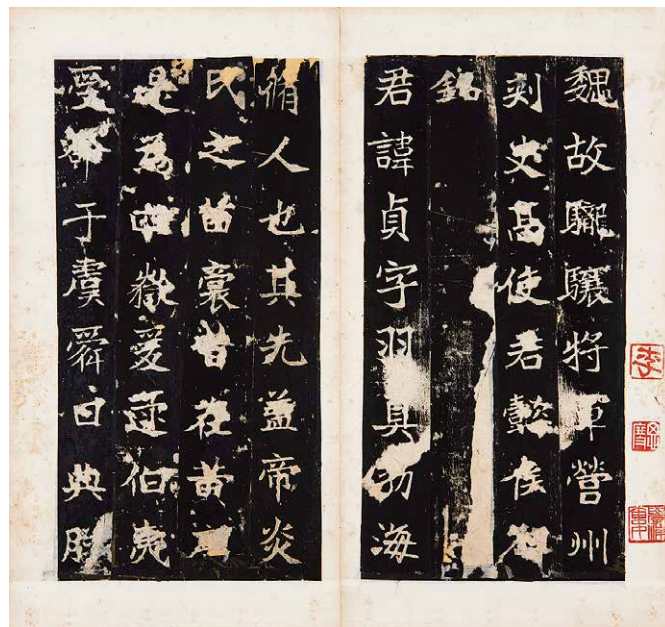 魏故驪驤将軍營州
刺史高使君懿侯碑
銘
君諱貞字羽真勃海
脩人也其先盖帝炎
氏之苗裔昔在黄
是爲四嶽爰逮伯夷
受命于虞舜曰典朕